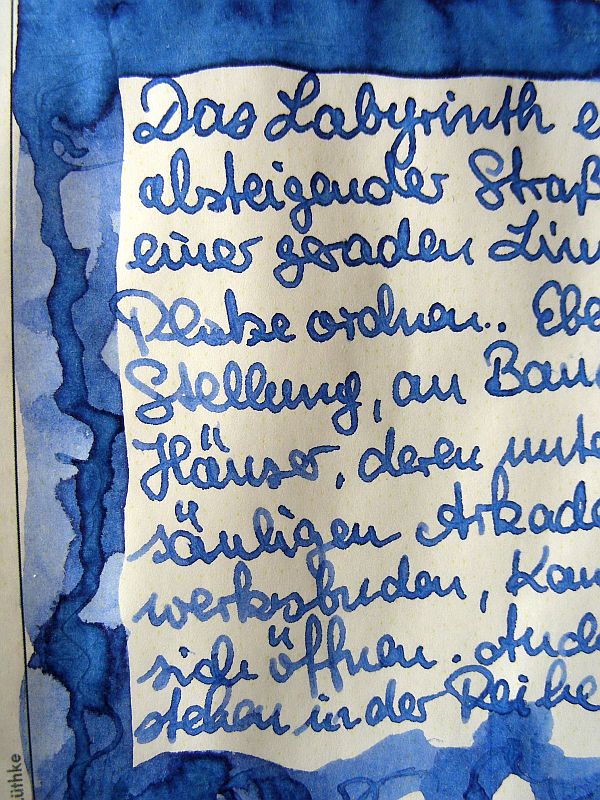 Das Labyrinth e
absteigender Straß
einer geraden Lini
Platze ordnen.. Ebe
Stellung, an Bau
Häuser, deren unte
säuligen Arkade
werksbuden, Kau
sich öffnen. Ande
stehen in der Reihe
üthke